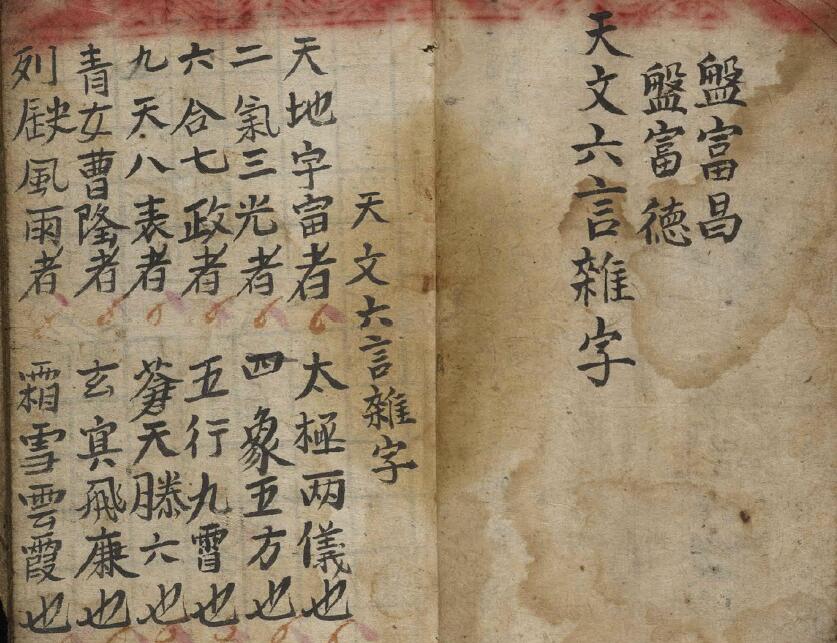 盤富昌
盤富德
天文六言雜字
天文六言雜字
天地宇富者 太極两儀也
二氣三光者 四象五方也
六合七政者 五行九霄也
九天八表者 蒼天滕六也
青女曹隆者 玄冥飛廉也
列缺風雨者 霜雪雲霞也